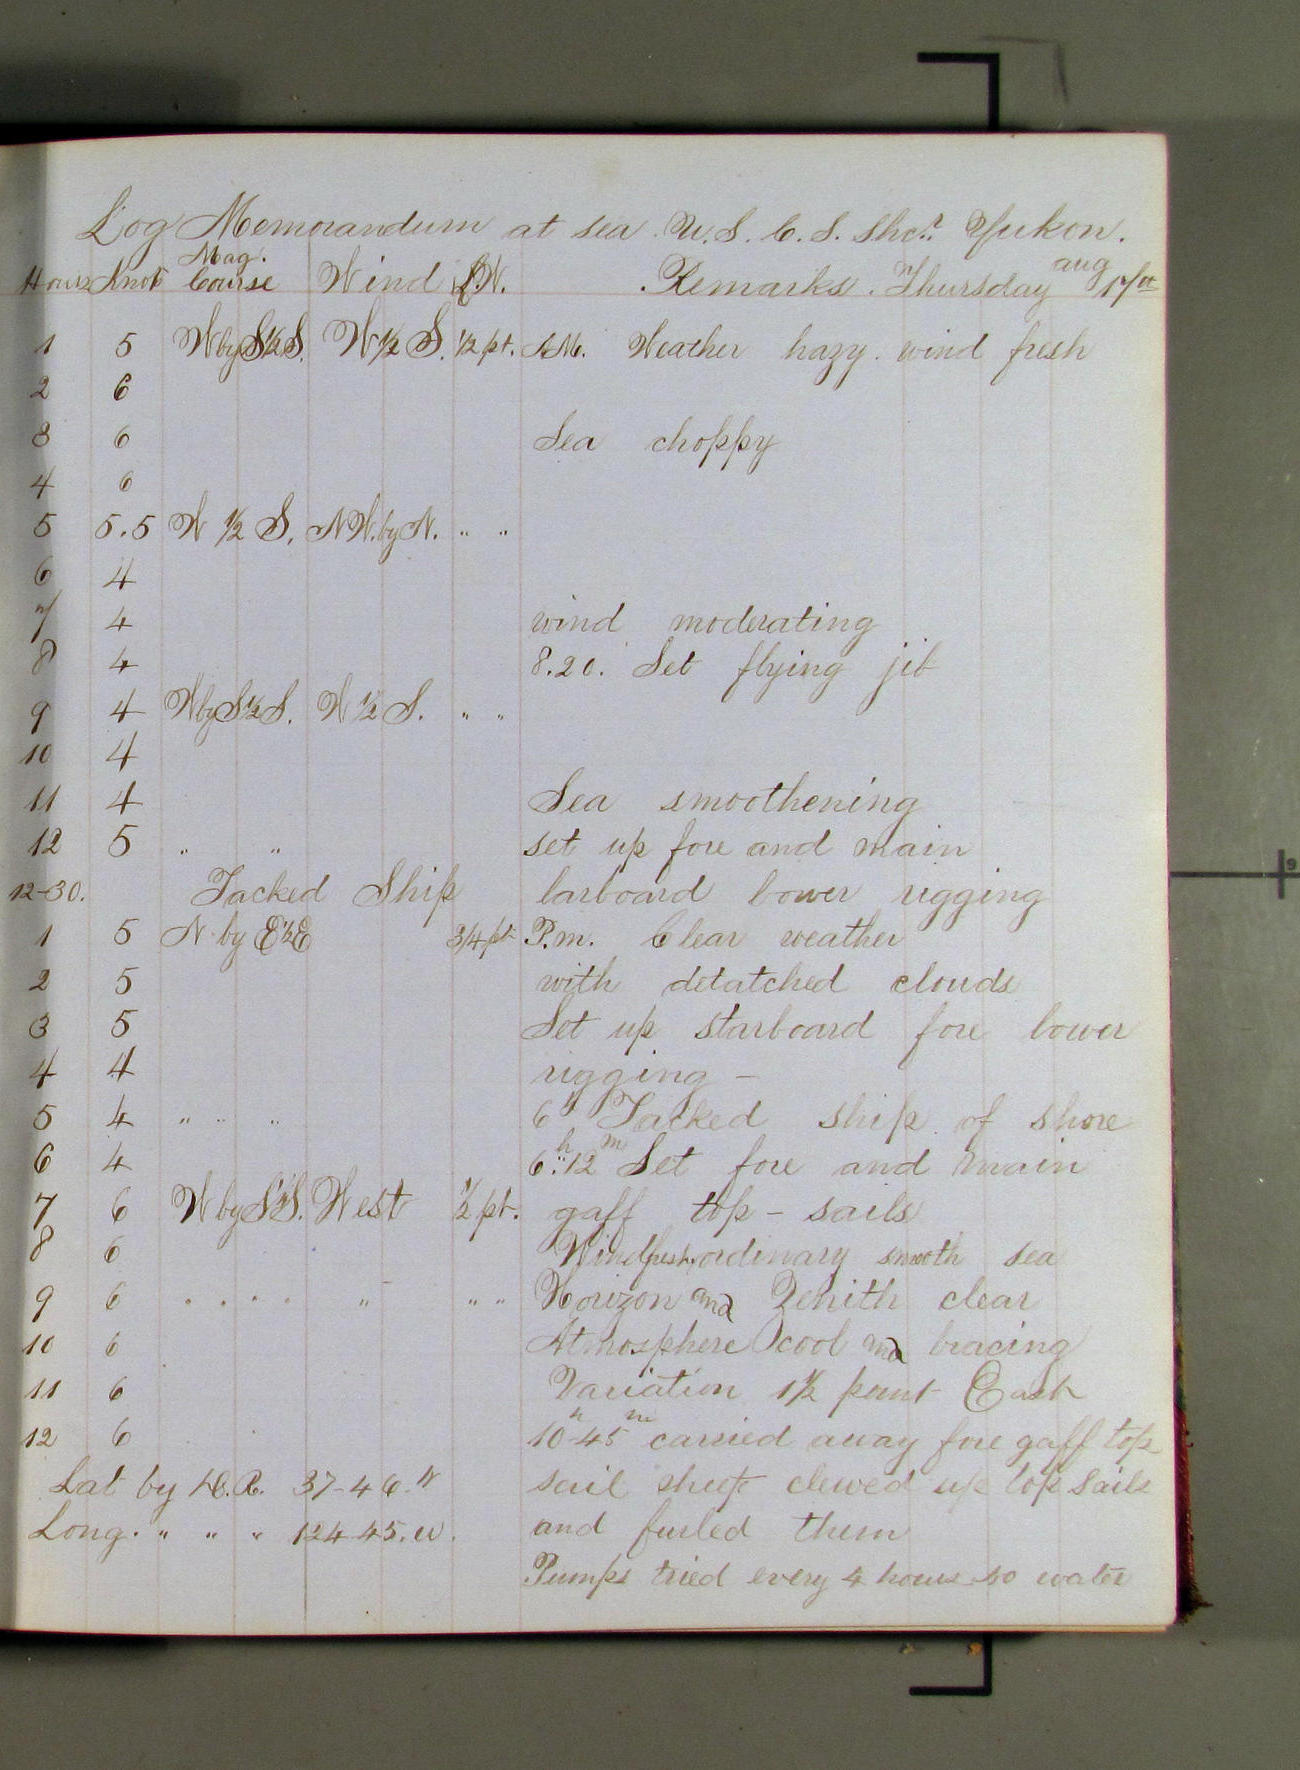 Log Memorandum at sea. U.S.C.S. Schr. Yukon.
Hours Knots Mag. Course Wind L.W. Remarks. Thursday Aug 17th
1 5 W by S 1/2 S. W 1/2 S. 1/2 pt. A.M. Weather hazy. wind fresh
2 6
3 6 Sea choppy
4 6
5 5.5 W 1/2 S. N W. by N. " "
6 4
7 4 wind moderating
8 4 8.20. Set flying jib
9 4 W by S 1/2 S. W 1/2 S. " "
10 4
11 4 Sea smoothening
12 5 " " set up fore and main
12-30. Tacked Ship larboard lower rigging
1 5 N. by E 1/2 E 3/4 pt P.m. Clear weather
2 5 with detatched clouds
3 5 Set up starboard fore lower
4 4 rigging -
5 4 " " " 6h Tacked ship of shore
6 4 6h 12m Set fore and main
7 6 W by S 1/2 S. West 1/2 pt. gaff top-sails
8 6 Wind fresh, ordinary smooth sea
9 6 " " " " " " " Horizon and Zenith clear
10 6 Atmosphere cool and bracing
11 6 Variation 1 1/2 point East
12 6 10h-45m carried away fore gaff top
Lat by D.R. 37-46. N sail sheet clewed up top sails
Long. " " " 124-45. W. and furled them
Pumps tried every 4 hours no water